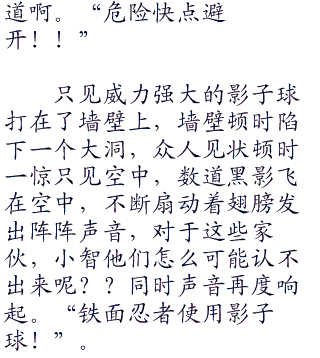 道啊。“危险快点避
开！！”
只见威力强大的影子球
打在了墙壁上，墙壁顿时陷
下一个大洞，众人见状顿时
一惊只见空中，数道黑影飞
在空中，不断扇动着翅膀发
出阵阵声音，对于这些家
伙，小智他们怎么可能认不
出来呢？？同时声音再度响
起。“铁面忍者使用影子
球！”。